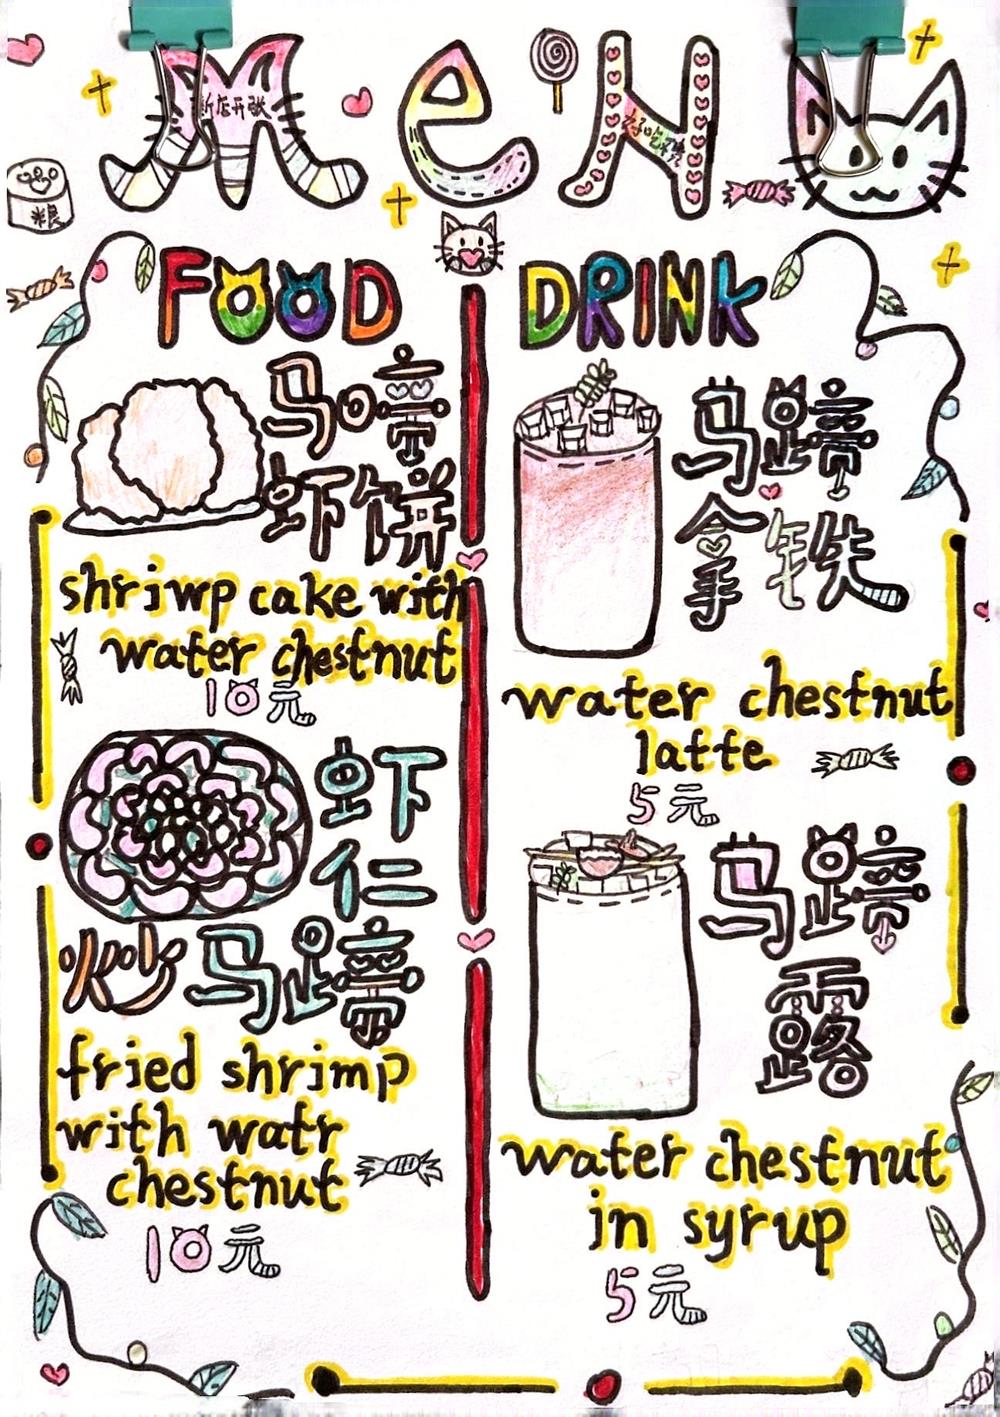 MeN
新店开张
粮
FOOD
马啼
虾饼
shriwp cake with
water chestnut
10元
虾
仁
炒马蹄
fried shrimp
with watr
chestnut
10元
DRINK
马蹄
拿铁
water chestnut
latte
5元
马蹄
露
water chestnut
in syrup
5元